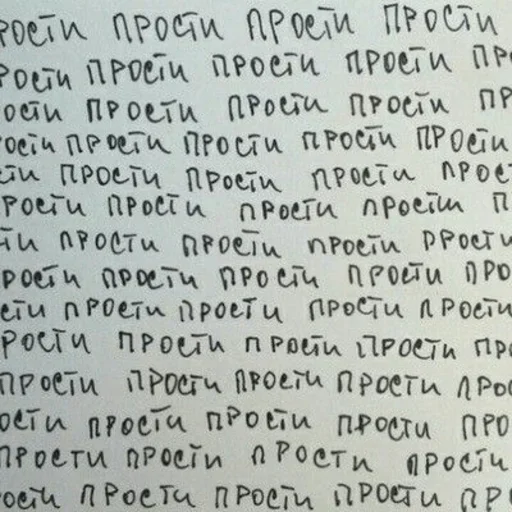 рости прости прости прости
рости прости прости прости пр
ости прости прости прости пр
ости прости прости прости прости
ти прости прости прости прост
рости прости прости прости п
ти прости прости прости прости
рости прости прости прости про
сти прости прости прости прости
рости прости прости прости пр
прости прости прости прости про
ости прости прости прости про
прости прости прости прости
ости прости прости прости пр